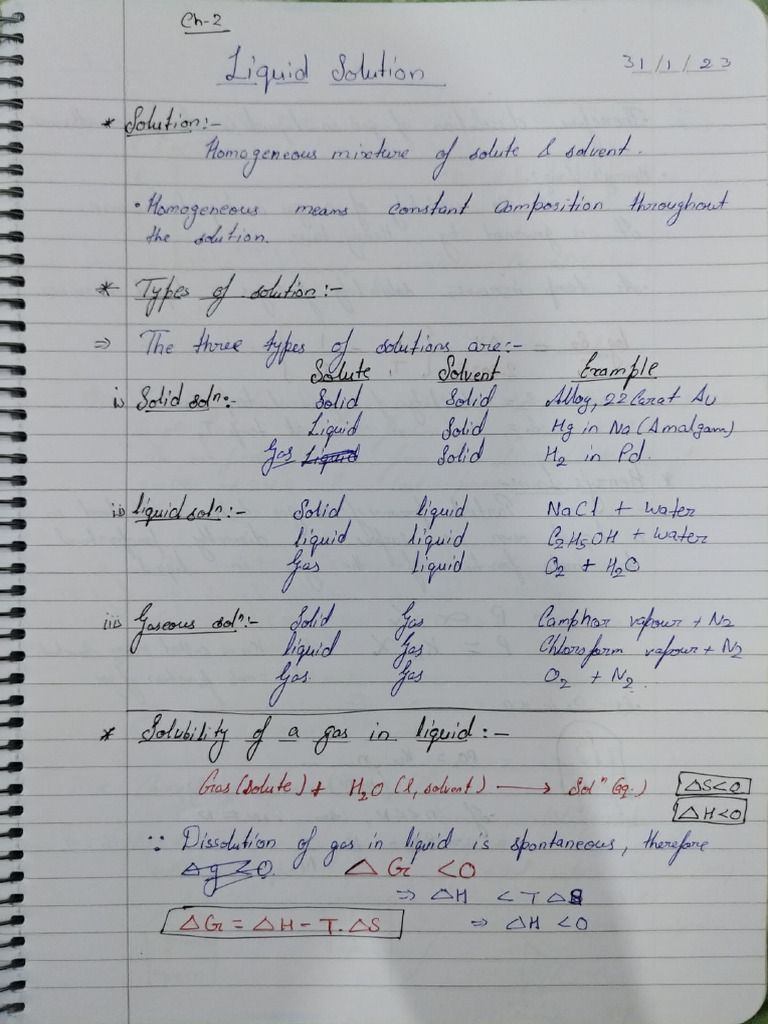 Ch-2
Liquid Solution 31/1/23
* Solution:-
Homogeneous mixture of solute & solvent.
• Homogeneous means constant composition throughout
the solution.
* Types of solution:-
⇒ The three types of solutions are:-
Solute Solvent Example
i) Solid solⁿ:- Solid Solid Alloy, 22 Carat Au
Liquid Solid Hg in Na (Amalgam)
Gas Liquid Solid H₂ in Pd.
ii) liquid solⁿ:- Solid liquid NaCl + water
liquid liquid C₂H₅OH + water
Gas liquid O₂ + H₂O
iii) Gaseous solⁿ:- Solid Gas Camphar vapour + N₂
liquid Gas Chloroform vapour + N₂
Gas. Gas O₂ + N₂.
* Solubility of a gas in liquid:-
Gas (solute) + H₂O (l, solvent) → Solⁿ (aq.) ΔS<0
ΔH<0
∵ Dissolution of gas in liquid is spontaneous, therefore
Δg<0 ΔG <0
⇒ ΔH < TΔS
ΔG = ΔH - T.ΔS ⇒ ΔH <0